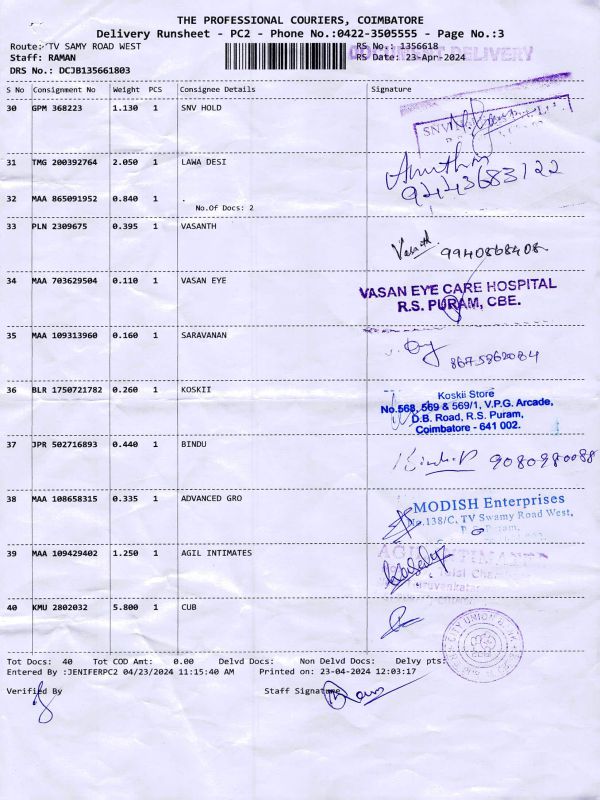 THE PROFESSIONAL COURIERS, COIMBATORE
Delivery Runsheet - PC2 - Phone No.:0422-3505555 - Page No.:3
Route: TV SAMY ROAD WEST RS No.: 1356618
Staff: RAMAN RS Date: 23-Apr-2024 DELIVERY
DRS No.: DCJB135661803
S No Consignment No Weight PCS Consignee Details Signature
30 GPM 368223 1.130 1 SNV HOLD
SNV
31 TMG 200392764 2.050 1 LAWA DESI
9443683122
32 MAA 865091952 0.840 1 .
No.Of Docs: 2
33 PLN 2309675 0.395 1 VASANTH
Vasanth 9940868408
34 MAA 703629504 0.110 1 VASAN EYE
VASAN EYE CARE HOSPITAL
R.S. PURAM, CBE.
35 MAA 109313960 0.160 1 SARAVANAN
8675862084
36 BLR 1750721782 0.260 1 KOSKII
Koskii Store
No.568, 569 & 569/1, V.P.G. Arcade,
D.B. Road, R.S. Puram,
Coimbatore - 641 002.
37 JPR 502716893 0.440 1 BINDU
9080980088
38 MAA 108658315 0.335 1 ADVANCED GRO
MODISH Enterprises
No.138/C, TV Swamy Road West,
Puram,
39 MAA 109429402 1.250 1 AGIL INTIMATES
40 KMU 2802032 5.800 1 CUB
CITY UNION
Tot Docs: 40 Tot COD Amt: 0.00 Delvd Docs: Non Delvd Docs: Delvy pts:
Entered By :JENIFERPC2 04/23/2024 11:15:40 AM Printed on: 23-04-2024 12:03:17
Verified By Staff Signature